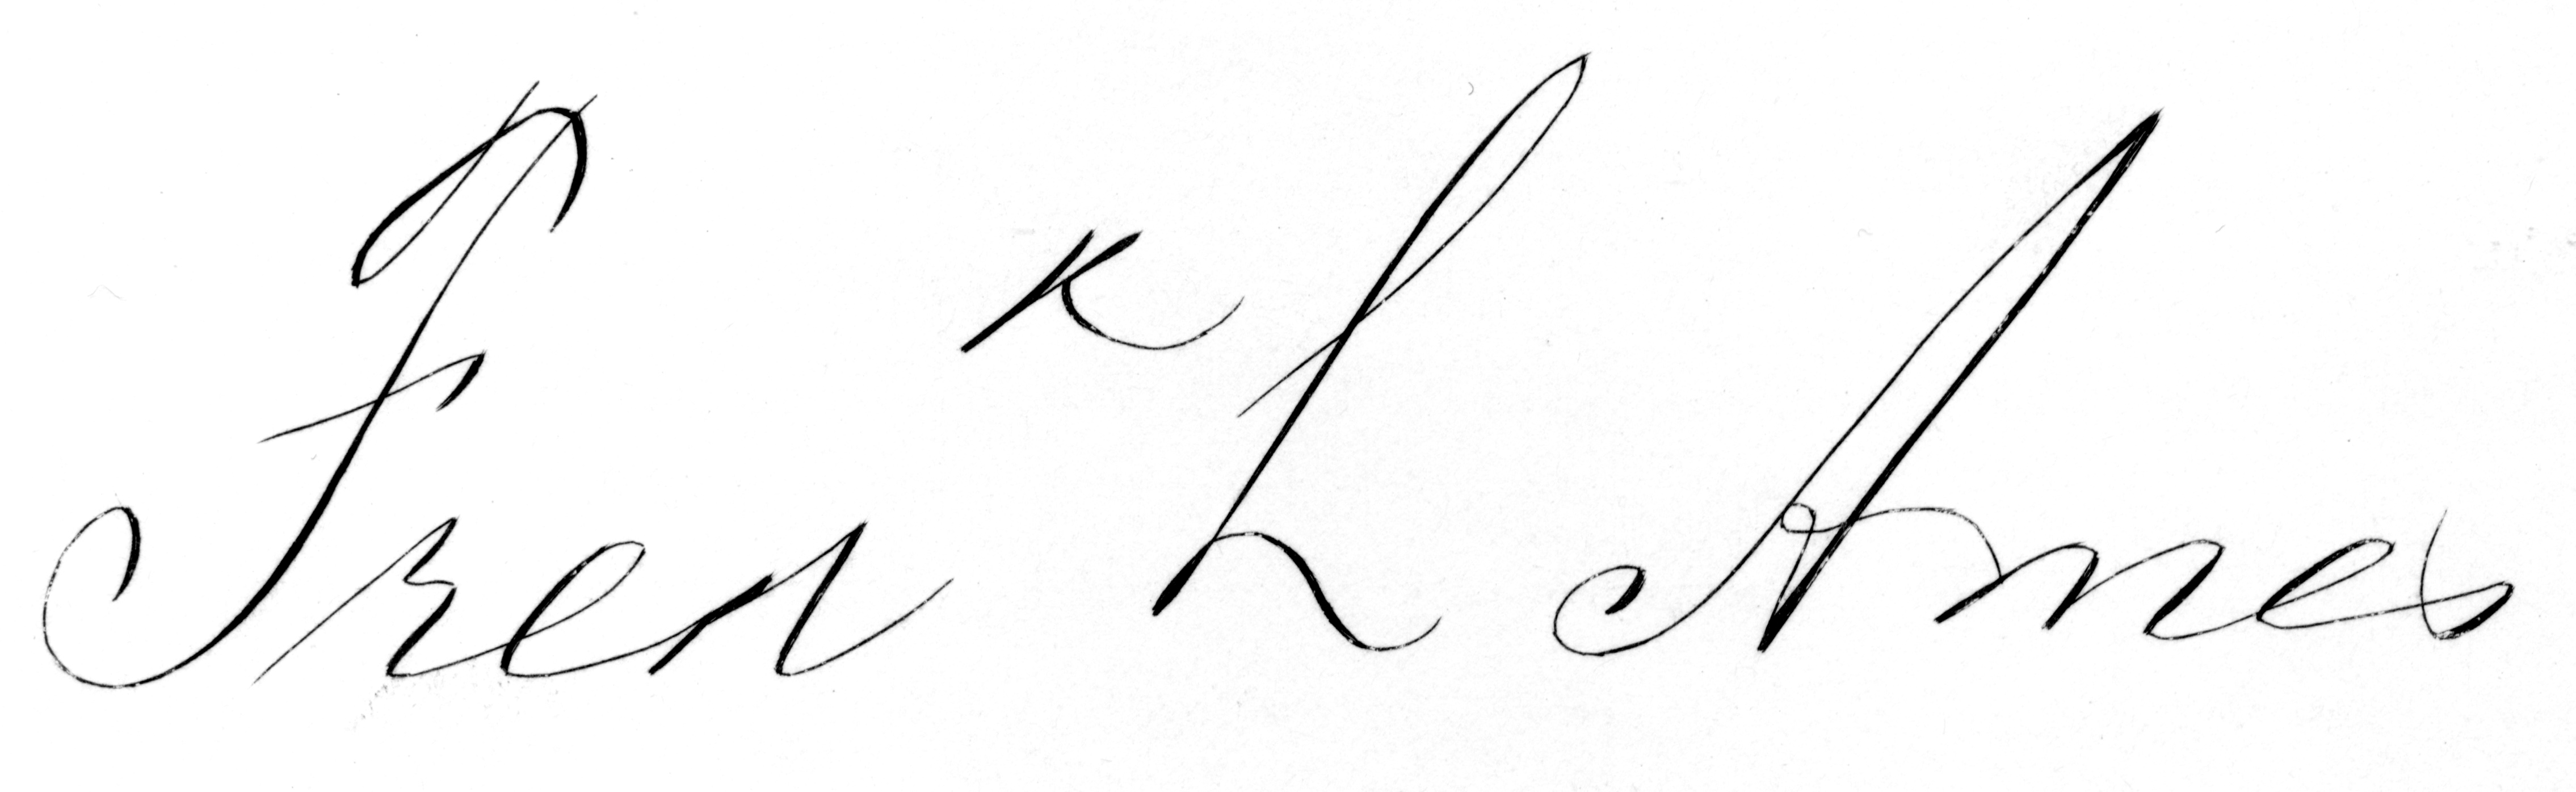 Fren K L Ames